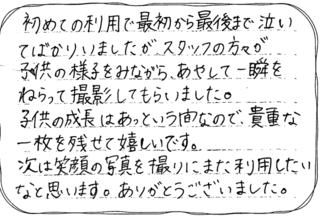 初めての利用で最初から最後まで泣い
てばかりいましたが、スタッフの方々が
子供の様子をみながら、あやして一瞬を
ねらって撮影してもらいました。
子供の成長はあっという間なので、貴重な
一枚を残せて嬉しいです。
次は笑顔の写真を撮りにまた利用したい
なと思います。ありがとうございました。